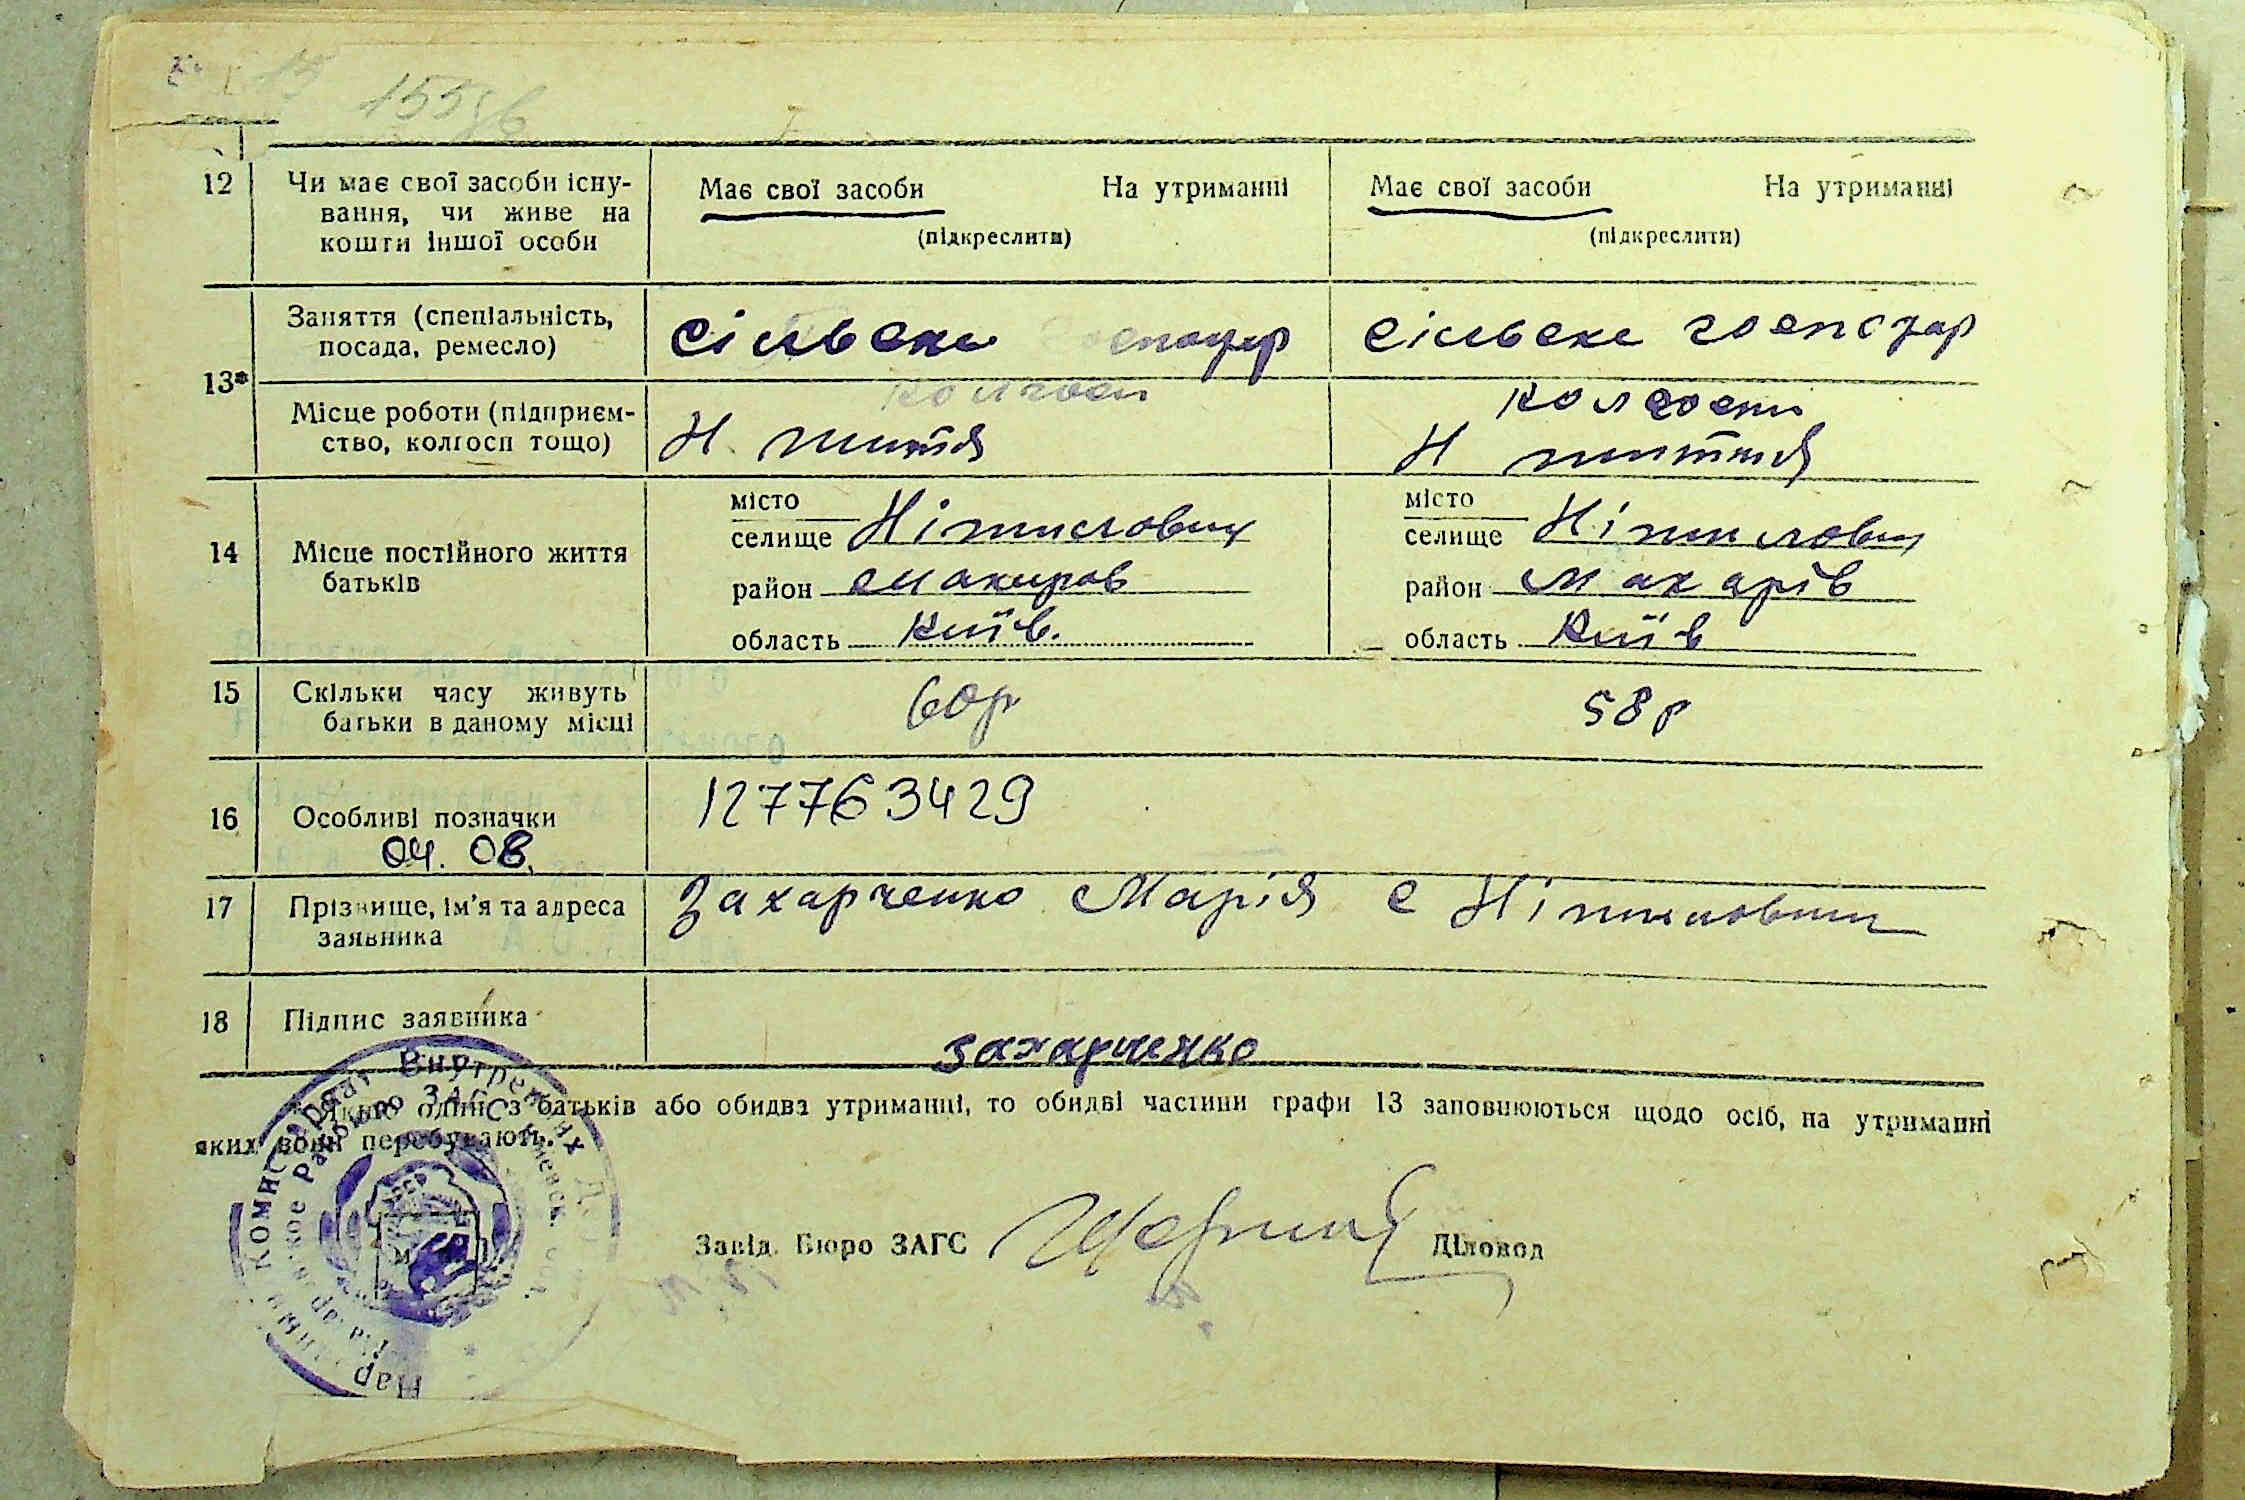 155зв
12 Чи має свої засоби існу- Має свої засоби На утриманні Має свої засоби На утриманні
вання, чи живе на
кошти іншої особи (підкреслити) (підкреслити)
Заняття (спеціальність, сільське сільське господар
посада, ремесло)
13*
колгосп колгосп
Місце роботи (підприєм- Н життя Н життя
ство, колгосп тощо)
місто місто
14 Місце постійного життя селище Ніжиловичі селище Ніжиловичі
батьків район Макарів район Макарів
область Київ. область Київ
15 Скільки часу живуть 60р 58р
батьки в даному місці
16 Особливі позначки 127763429
04. 08.
17 Прізвище, ім'я та адреса Захарченко Марія с Ніжиловичі
заявника
18 Підпис заявника захарченко
* Якщо один з батьків або обидва утриманці, то обидві частини графи 13 заповнюються щодо осіб, на утриманні
яких вони перебувають.
Завід. Бюро ЗАГС Діловод